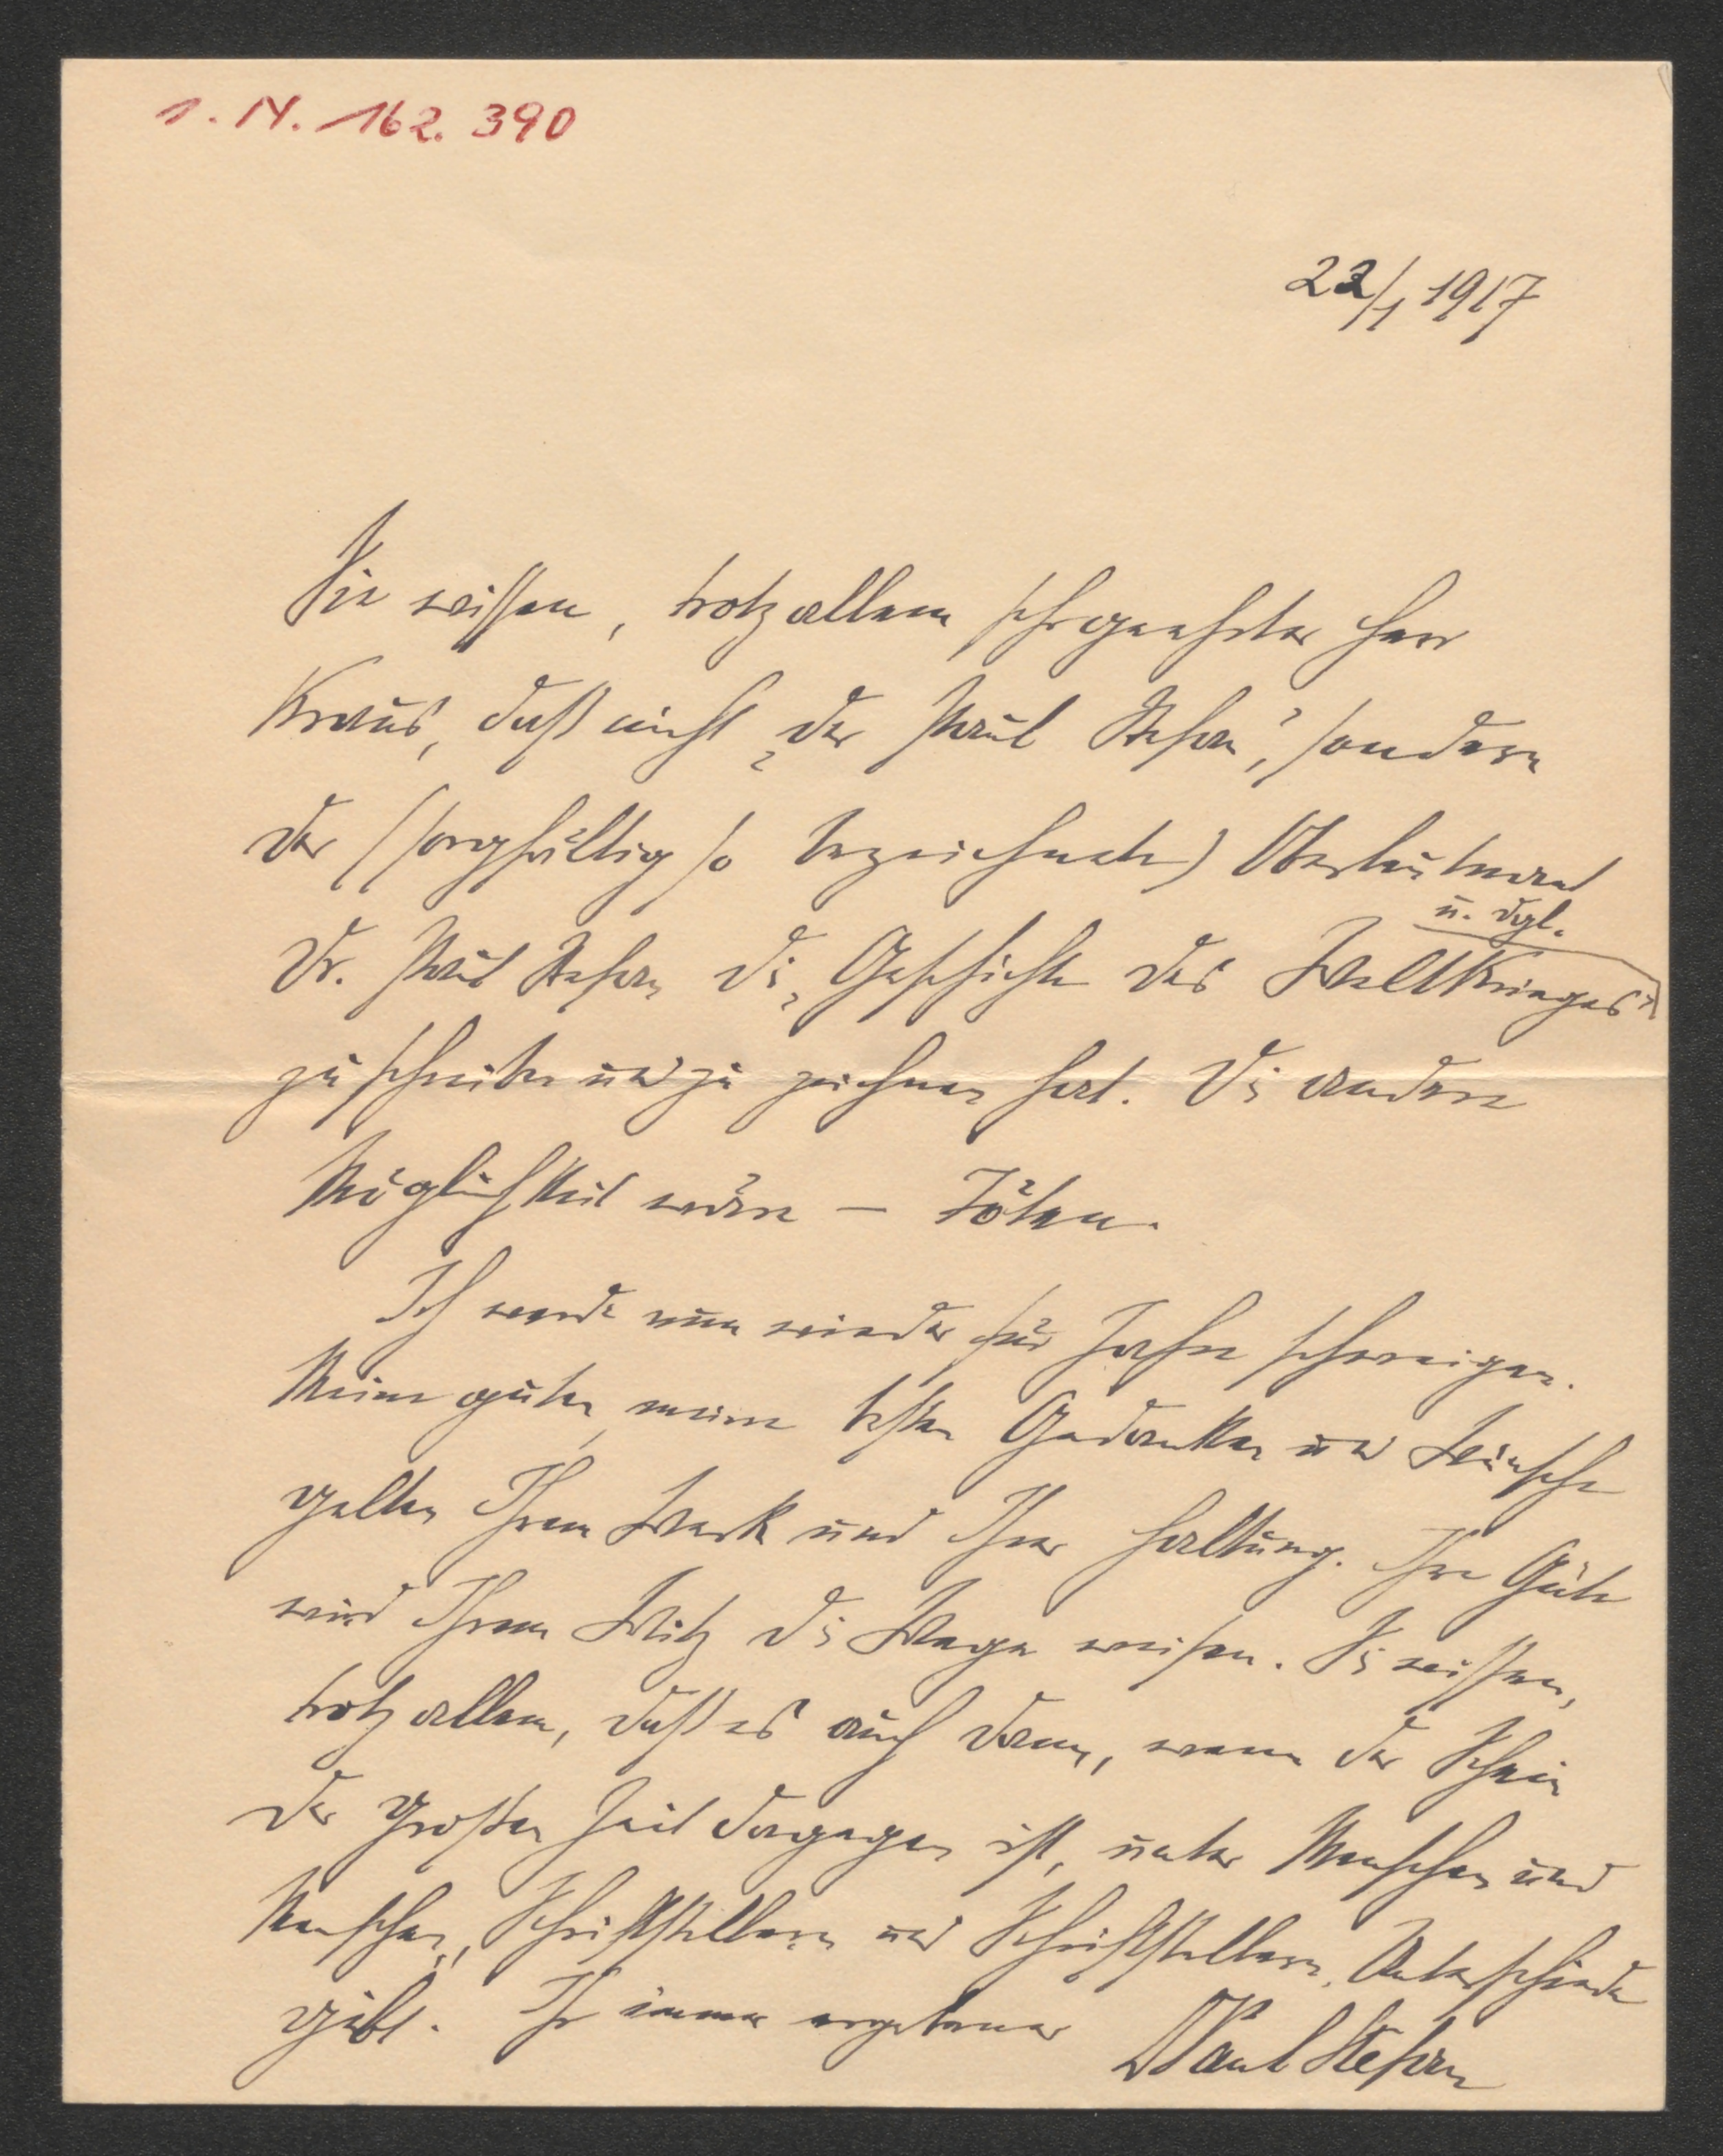 I. N. 162.390
22/1 1917
Sie wissen, trotz allem sehr geehrter Herr
Kraus, daß nicht „der Paul Stefan", sondern
der (sorgfältig so bezeichnete) Oberleutnant
u. dgl.
Dr. Paul Stefan die „Geschichte des Weltkrieges"
zu schreiben und zu zeichnen hat. Die andere
Möglichkeit wäre — Töten.
Ich werde nun wieder für Jahre schweigen.
Meine guten, meine besten Gedanken und Wünsche
gelten Ihrem Werk und Ihrer Haltung. Ihre Güte
wird Ihrem Witz die Wege weisen. Sie wissen,
trotz allem, daß es auch dann, wenn der Schein
der großen Zeit dagegen ist, unter Menschen und
Menschen, Schriftstellern und Schriftstellern, Unterschiede
gibt. Ihr immer ergebener
Paul Stefan